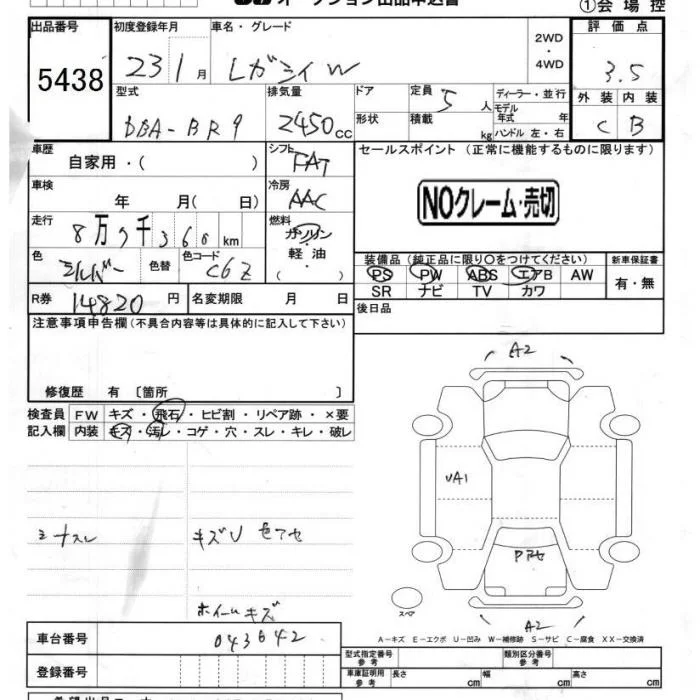 ①会場控
出品番号 初度登録年月 車名・グレード 2WD・4WD 評価点
5438 23 1月 レガシィW 3.5
型式 排気量 ドア 定員 5人 ディーラー・並行 外装 内装
DBA-BR9 2450cc 形状 積載 kg モデル年式 年 ハンドル 左・右 C B
車歴 自家用・( ) シフト FAT セールスポイント (正常に機能するものに限ります)
車検 年 月( 日) 冷房 AAC NOクレーム・売切
走行 8万 千366km 燃料 ガソリン・軽油・( )
色 色替 色コード C6Z 装備品(純正品に限り○をつけてください) 新車保証書
PS PW ABS エアB AW 有・無
SR ナビ TV カワ
R券 14820円 名変期限 月 日 後日品
注意事項申告欄(不具合内容等は具体的に記入して下さい)
修復歴 有〔箇所 〕
検査員 FW キズ・飛石・ヒビ割・リペア跡・×要
記入欄 内装 キズ・汚レ・コゲ・穴・スレ・キレ・破レ
A2
UA1
キズU
ホイールキズ
スペア
A2
A-キズ E-エクボ U-凹み W-補修跡 S-サビ C-腐食 XX-交換済
車台番号 043642
型式指定番号 参考 類別区分番号 参考
登録番号 車庫証明用 参考 長さ cm 幅 cm 高さ cm